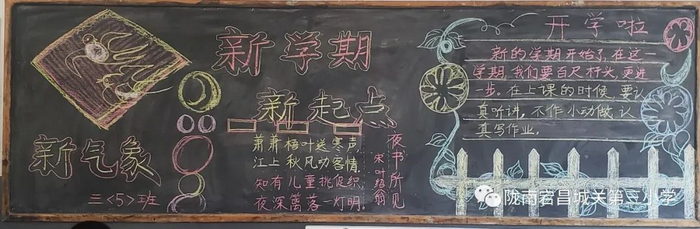 新学期
新起点
新气象
三<5>班
夜书所见
宋·叶绍翁
萧萧梧叶送寒声
江上秋风动客情。
知有儿童挑促织
夜深篱落一灯明。
开学啦
新的学期开始了,在这
学期,我们要百尺杆头,更进
一步。在上课的时候,要认
真听讲,不作小动做,认
真写作业。
陇南宕昌城关第三小学